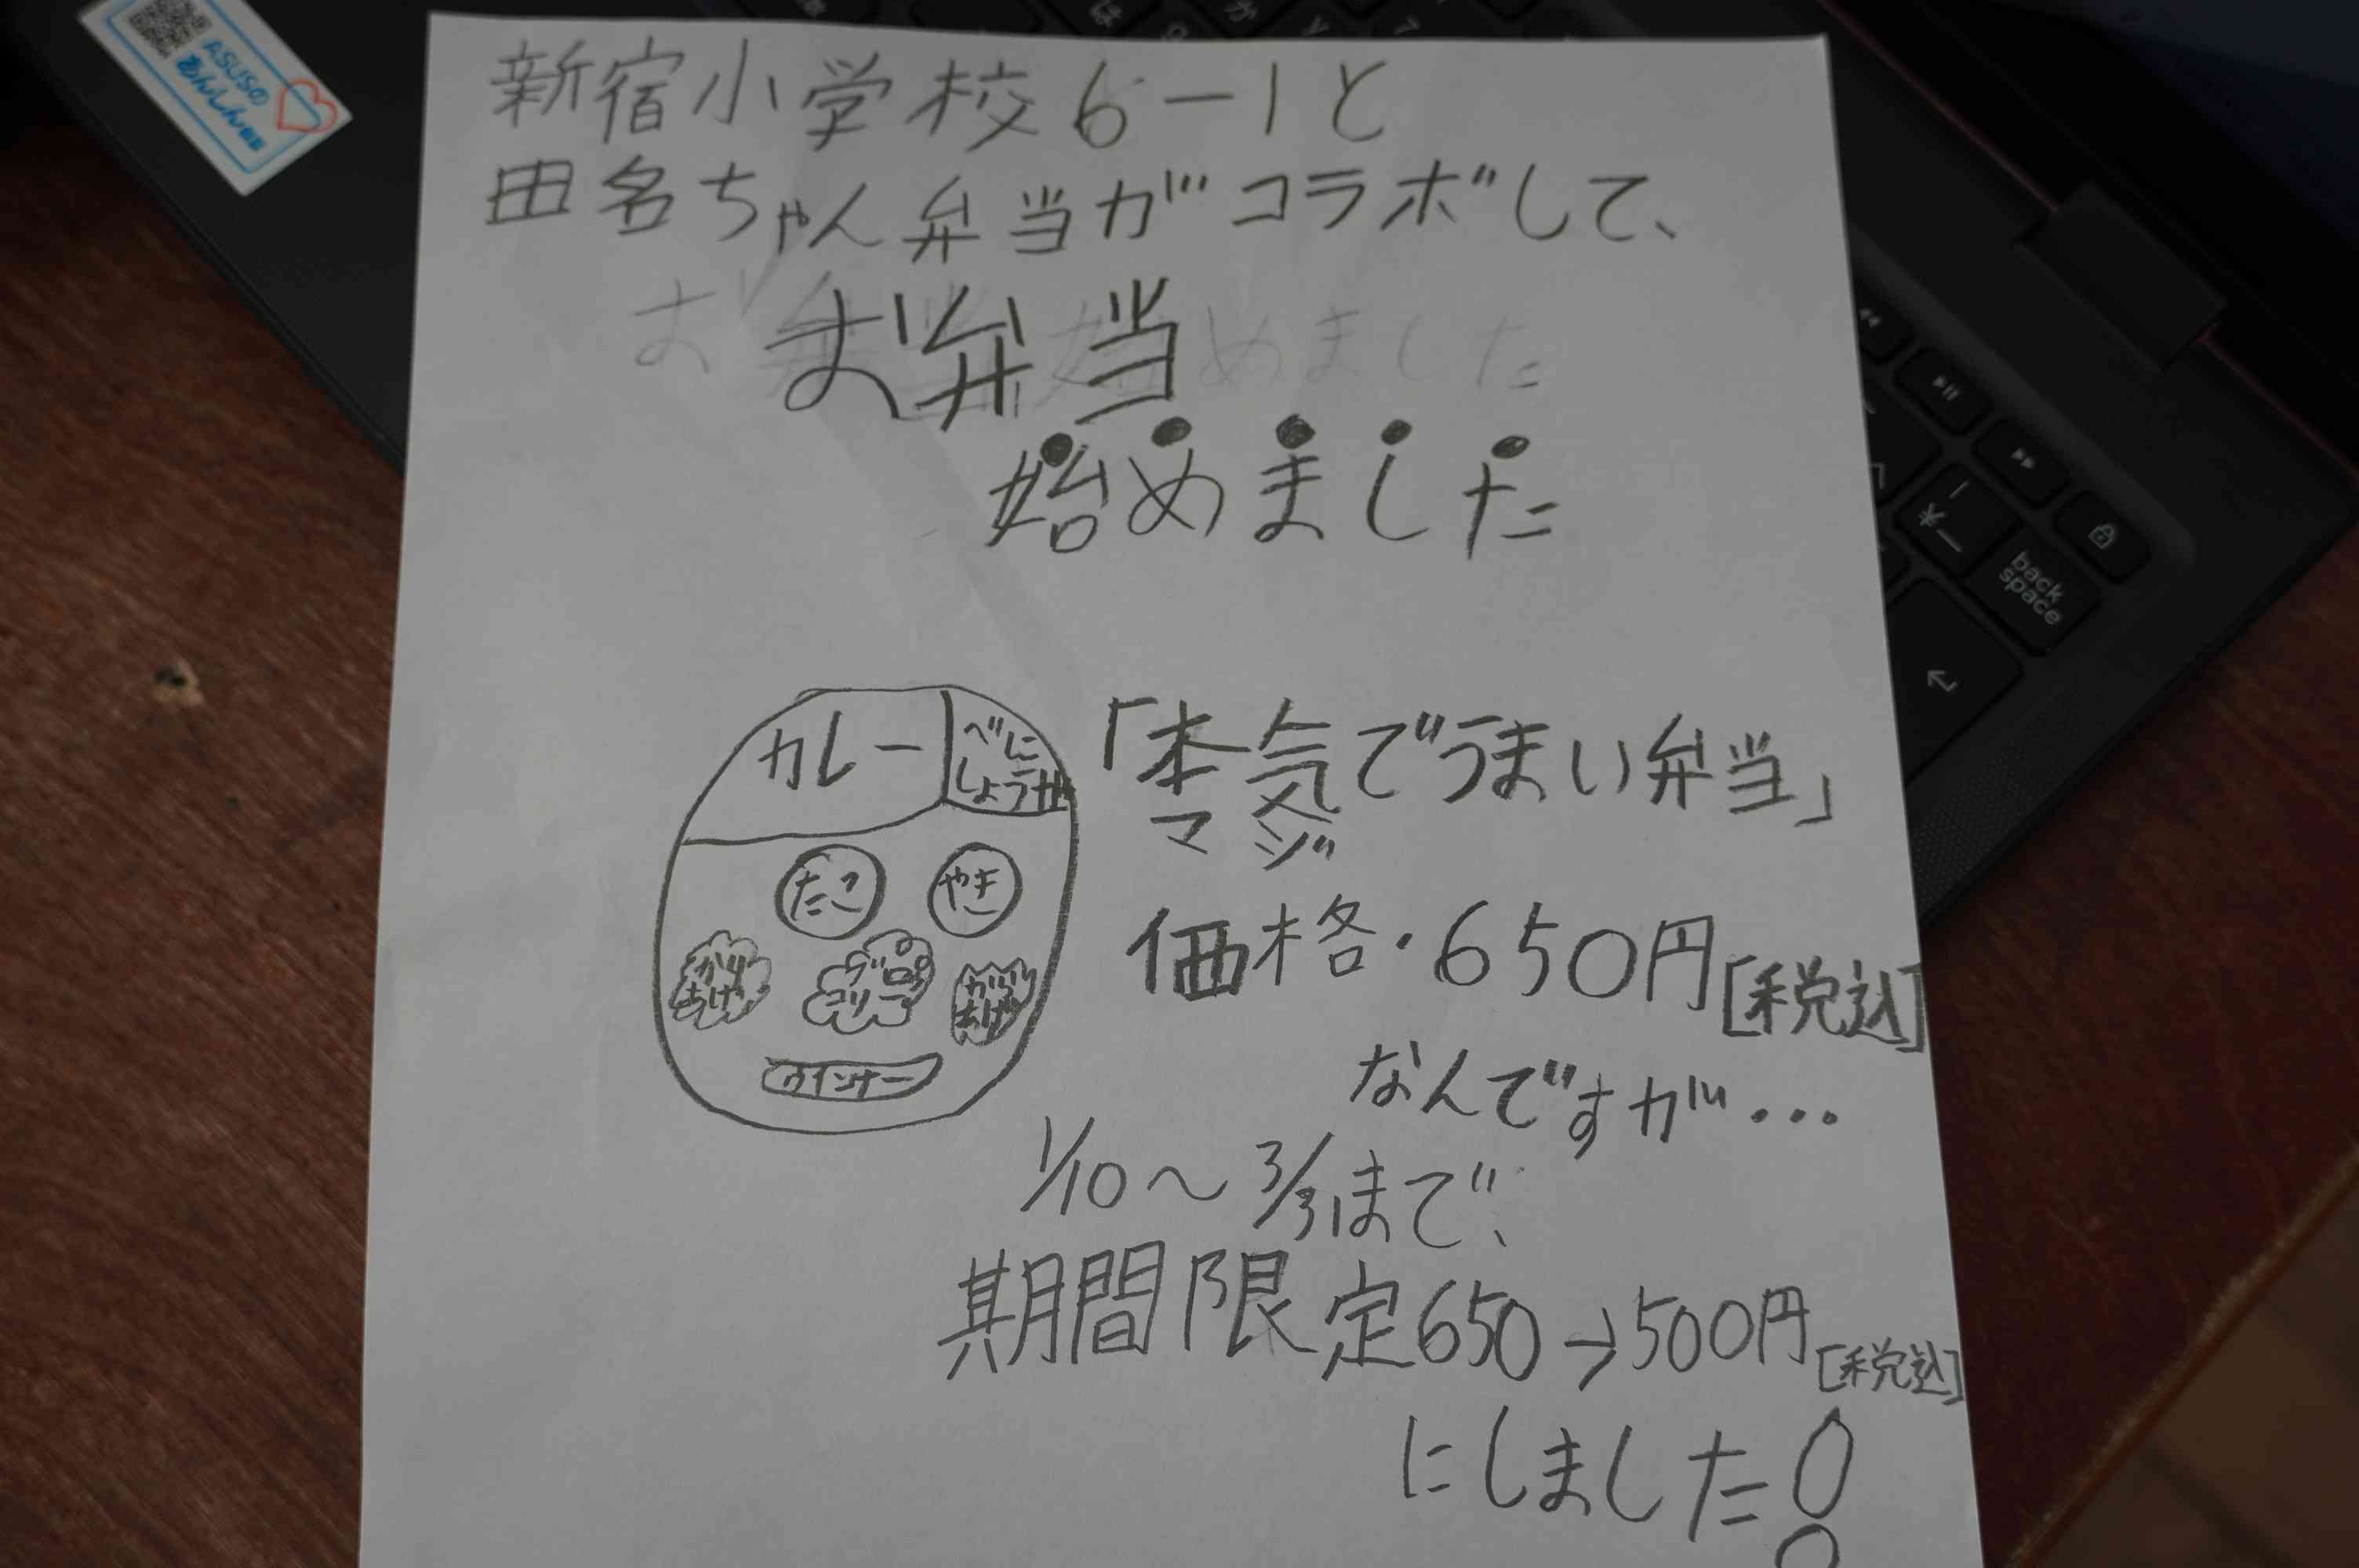 新宿小学校6-1と
田名ちゃん弁当がコラボして、
お弁当始めました
お弁当
始めました
カレー
べに
しょうが
「本気でうまい弁当」
マジ
たこ
やき
価格・650円[税込]
からあげ
ブロッコリー
からあげ
ウインナー
なんですが...
1/10〜3/31まで、
期間限定650→500円[税込]
にしました!
ASUSの
あんしん保証
back
space